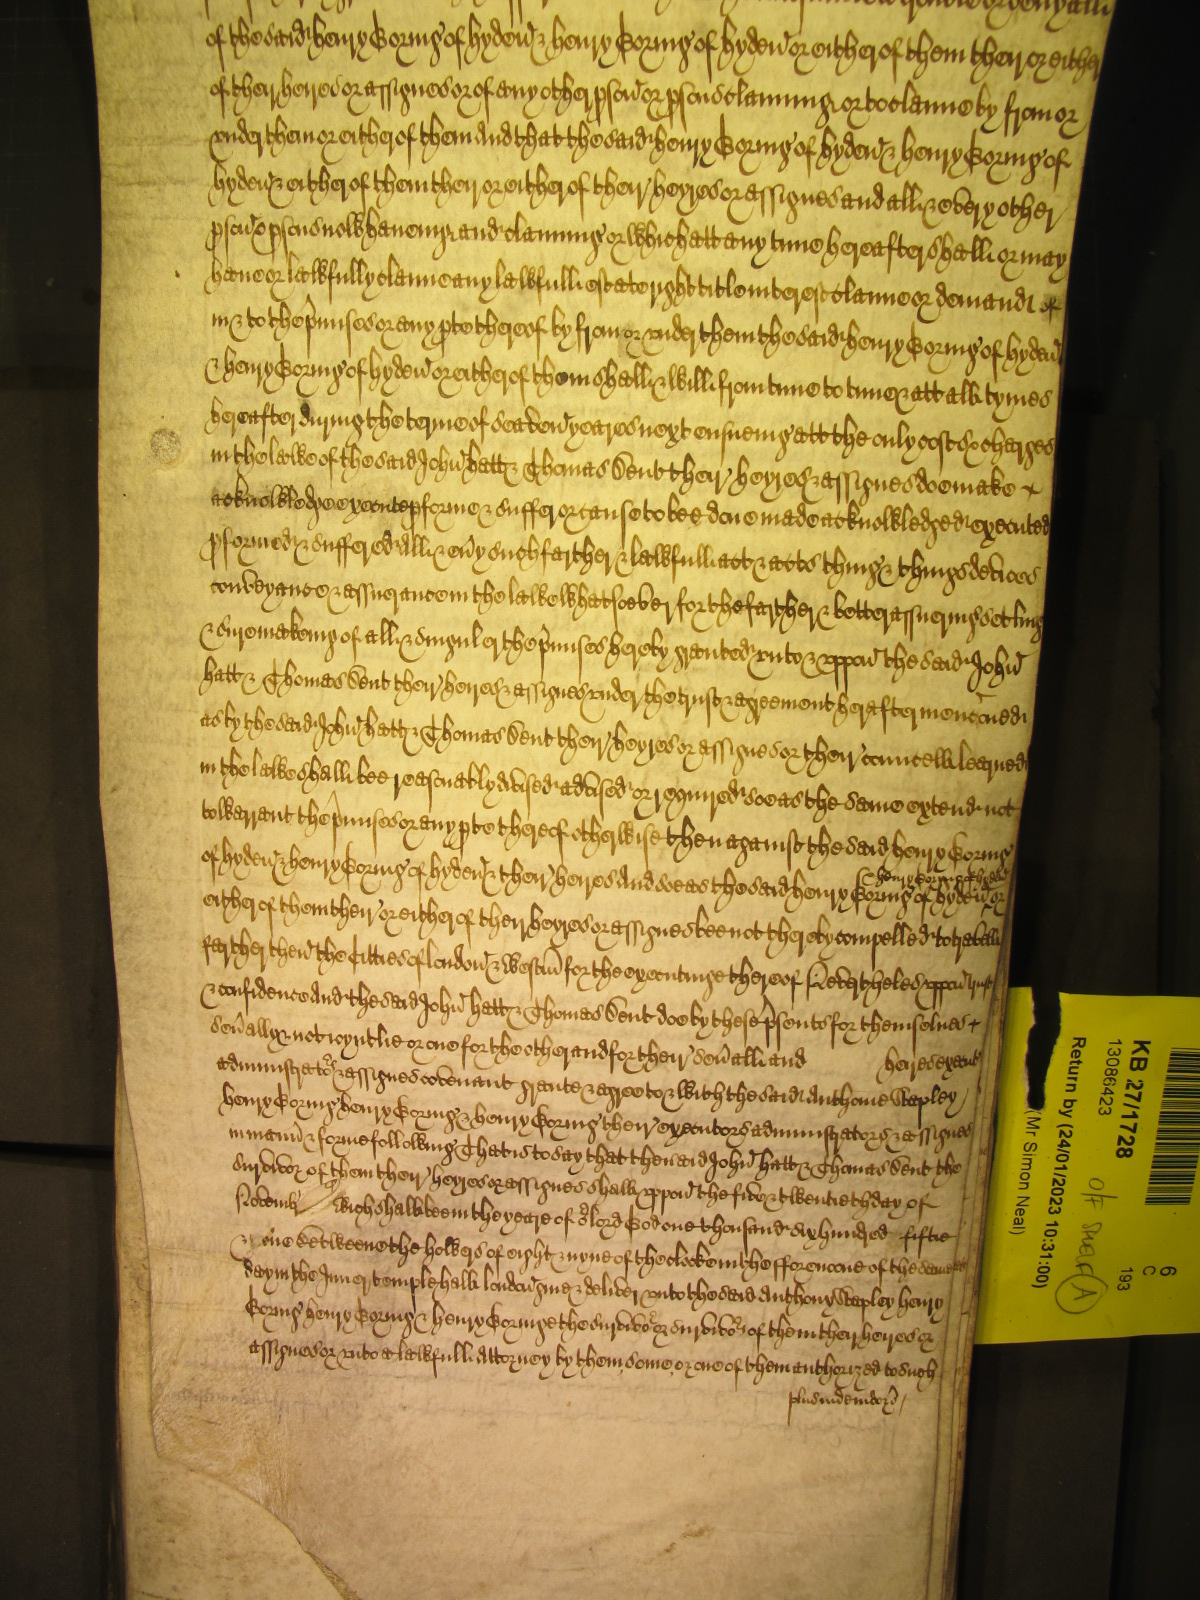 of the said Henry Goring of hyden & henry Goring of hyden or either of them their or either
of their heires or assignes or of any other pson or psons clayming or to clayme by from or
under them or either of them And that the said henry Goring of hyden & henry Goring of
hyden & either of them their or either of their heyres or assignes and all & every other
pson & psons now haueing and clayming or which att any time hereafter shall or may
haue or lawfully clayme any lawfull estate right title interest clayme or demand of
in & to the pmises or any pte thereof by from or under them the said henry Goring of hyden
& henry Goring of hyden or either of them shall & will from time to time & att all tymes
hereafter during the terme of seaven yeares next ensueing att the only costs & charges
in the lawe of the said John hatt & Thomas Bent their heyres & assignes doe make
acknowledge execute pforme & suffer or cause to bee done made acknowledged executed
pformed & suffered all & euy such farther & lawfull act & acts thing & things devices
conveyance & assurance in the lawe whatsoever for the farther & better assuering setling
& sure makeing of all & singuler the pmises hereby granted unto & uppon the said John
hatt & Thomas Bent their heires & assignes under the trust & agreement herafter menconed
as by the said John hatt & Thomas Bent their heyres or assignes or their councell learned
in the lawe shall bee reasonably devised advised or required soe as the same extend not
to warrant the pmises or any pte thereof otherwise then against the said henry Goring
of hyden & henry Goring of hyden & their heires And soe as the said henry Goring of hyden or
& henry Goring of hyden
either of them their or either of their heyres or assignes bee not thereby compelled to travell
farther then the Citties of london & Westm for the executinge thereof Neverthelesse uppon trust
& confidence And the said John hatt & Thomas Bent doe by these psents for themselues
seually & not ioyntlie or one for the other and for their seuall and heires execut
administrators & assignes covenant grante & agree to & with the said Anthonie Stapley
henry Goring henry Goring & henry Goring their executors administrators & assignes
in mann & forme following That is to say that the said John hatt & Thomas Bent the
survivor of them their heyres or assignes shall uppon the five & twentieth day of
Novemb which shall bee in the yeare of or lord God one thousand six hundred fiftie
& one betweene the howers of eight & nyne of the clocke in the fforenoone of the same
day in the Inner temple hall london giue & deliver unto the said Anthony Stapley henry
Goring henry Goring & henry Goringe the survivor or survivors of them their heires or
assignes or unto a lawfull Attorney by them some or one of them authorized to such
plus inde in dors
KB 27/1728
13086423
Return by (24/01/2023 10:31:00)
(Mr Simon Neal)
6
C
193
A